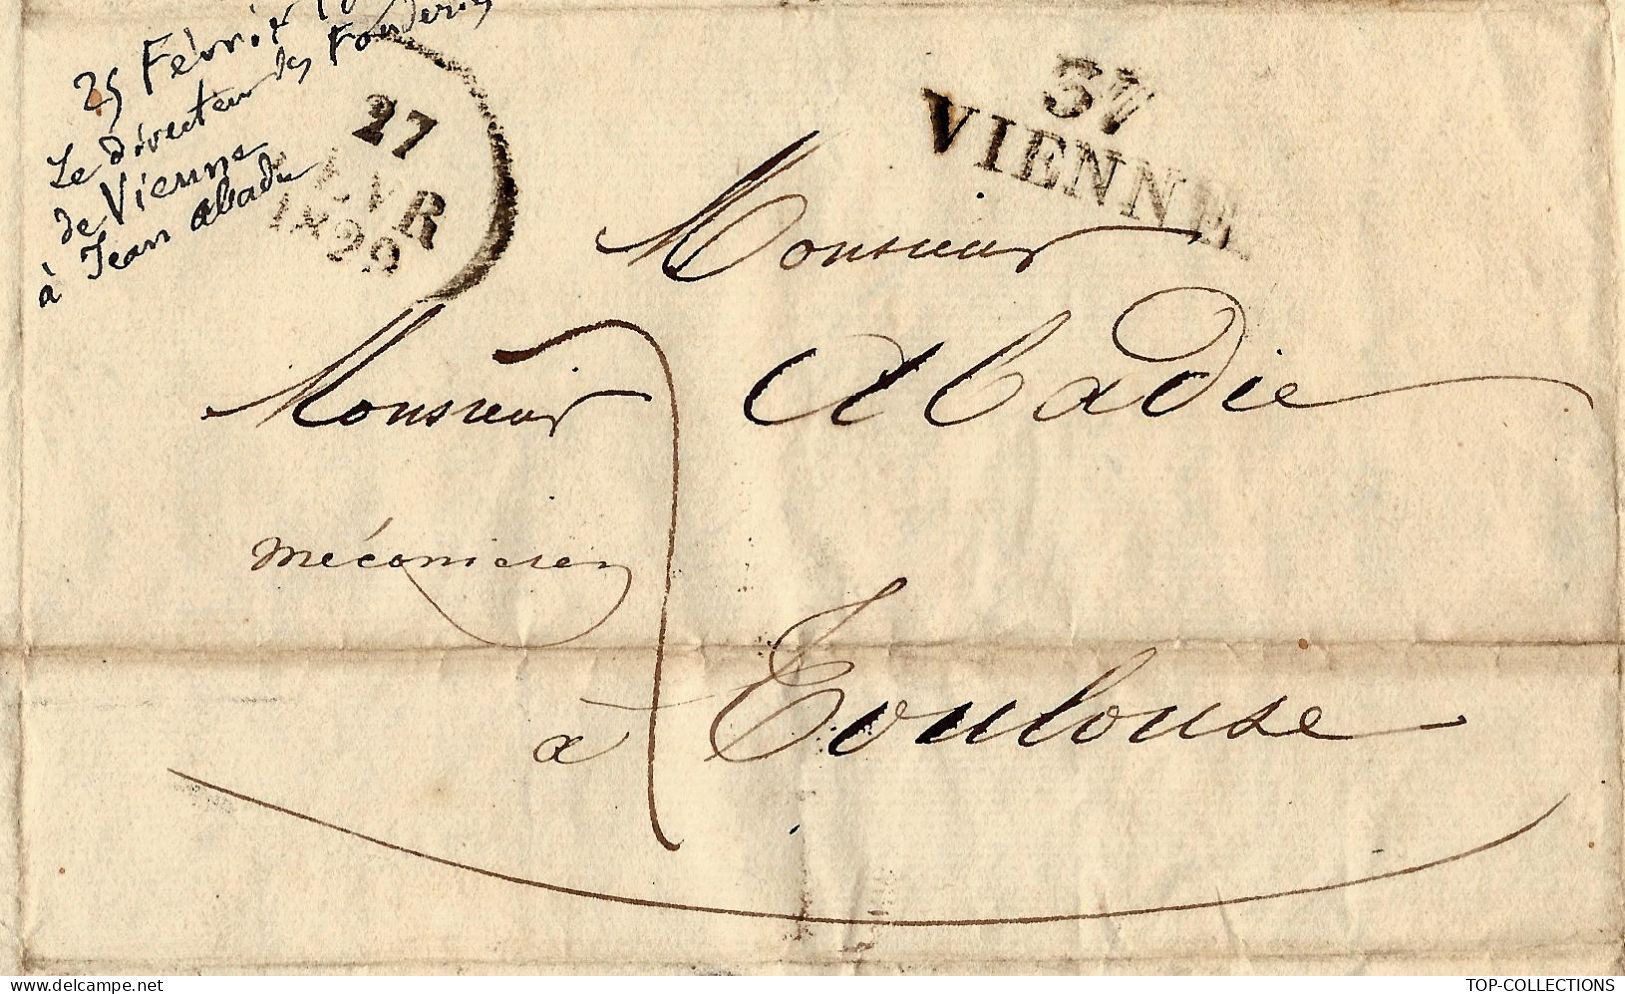 25 Février
Le directeur des Fonderies
de Vienne
à Jean Abadie
27
FEVR
1829
37
VIENNE
Monsieur
Monsieur Abadie
mécanicien
à Toulouse
TOP-COLLECTIONS